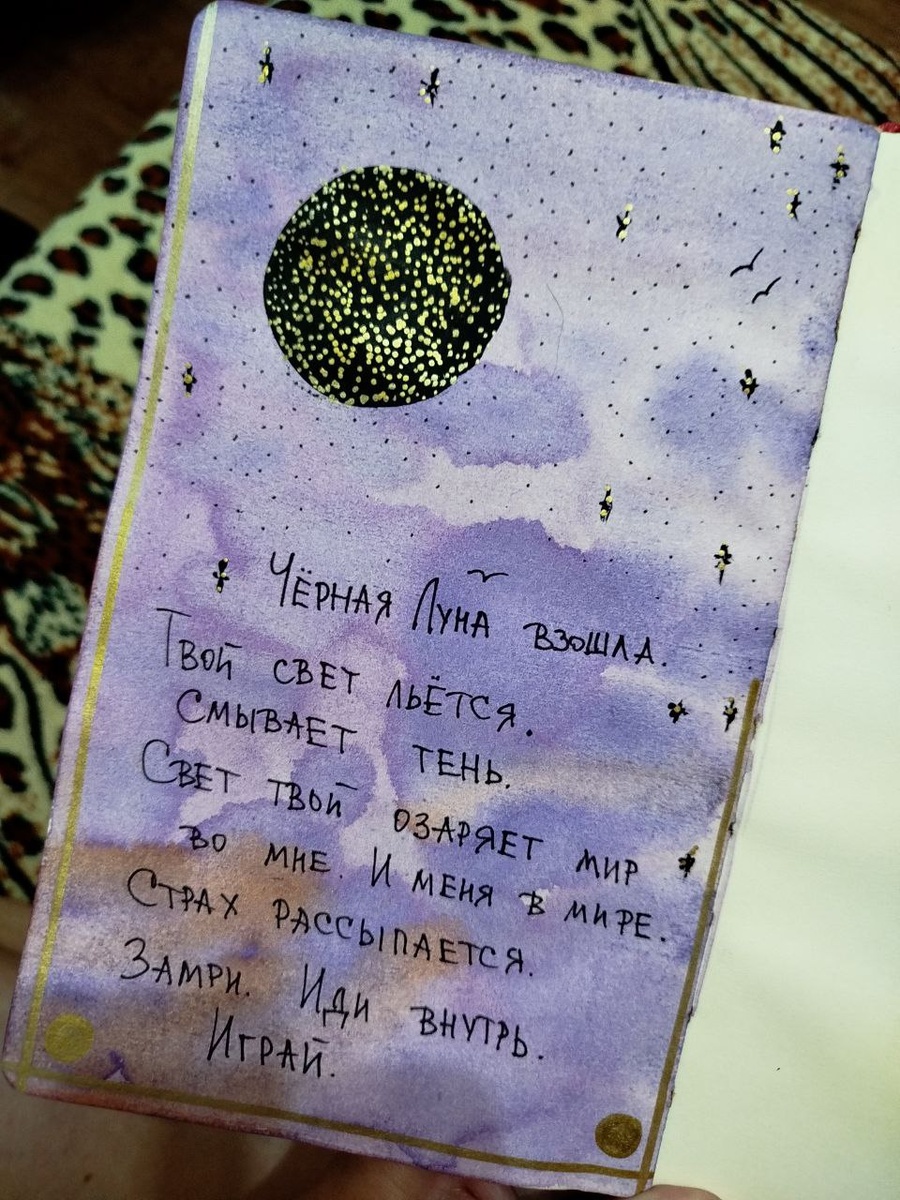 Чёрная Луна взошла.
Твой свет льётся.
Смывает тень.
Свет твой озаряет мир
во мне. И меня в мире.
Страх рассыпается.
Замри. Иди внутрь.
Играй.